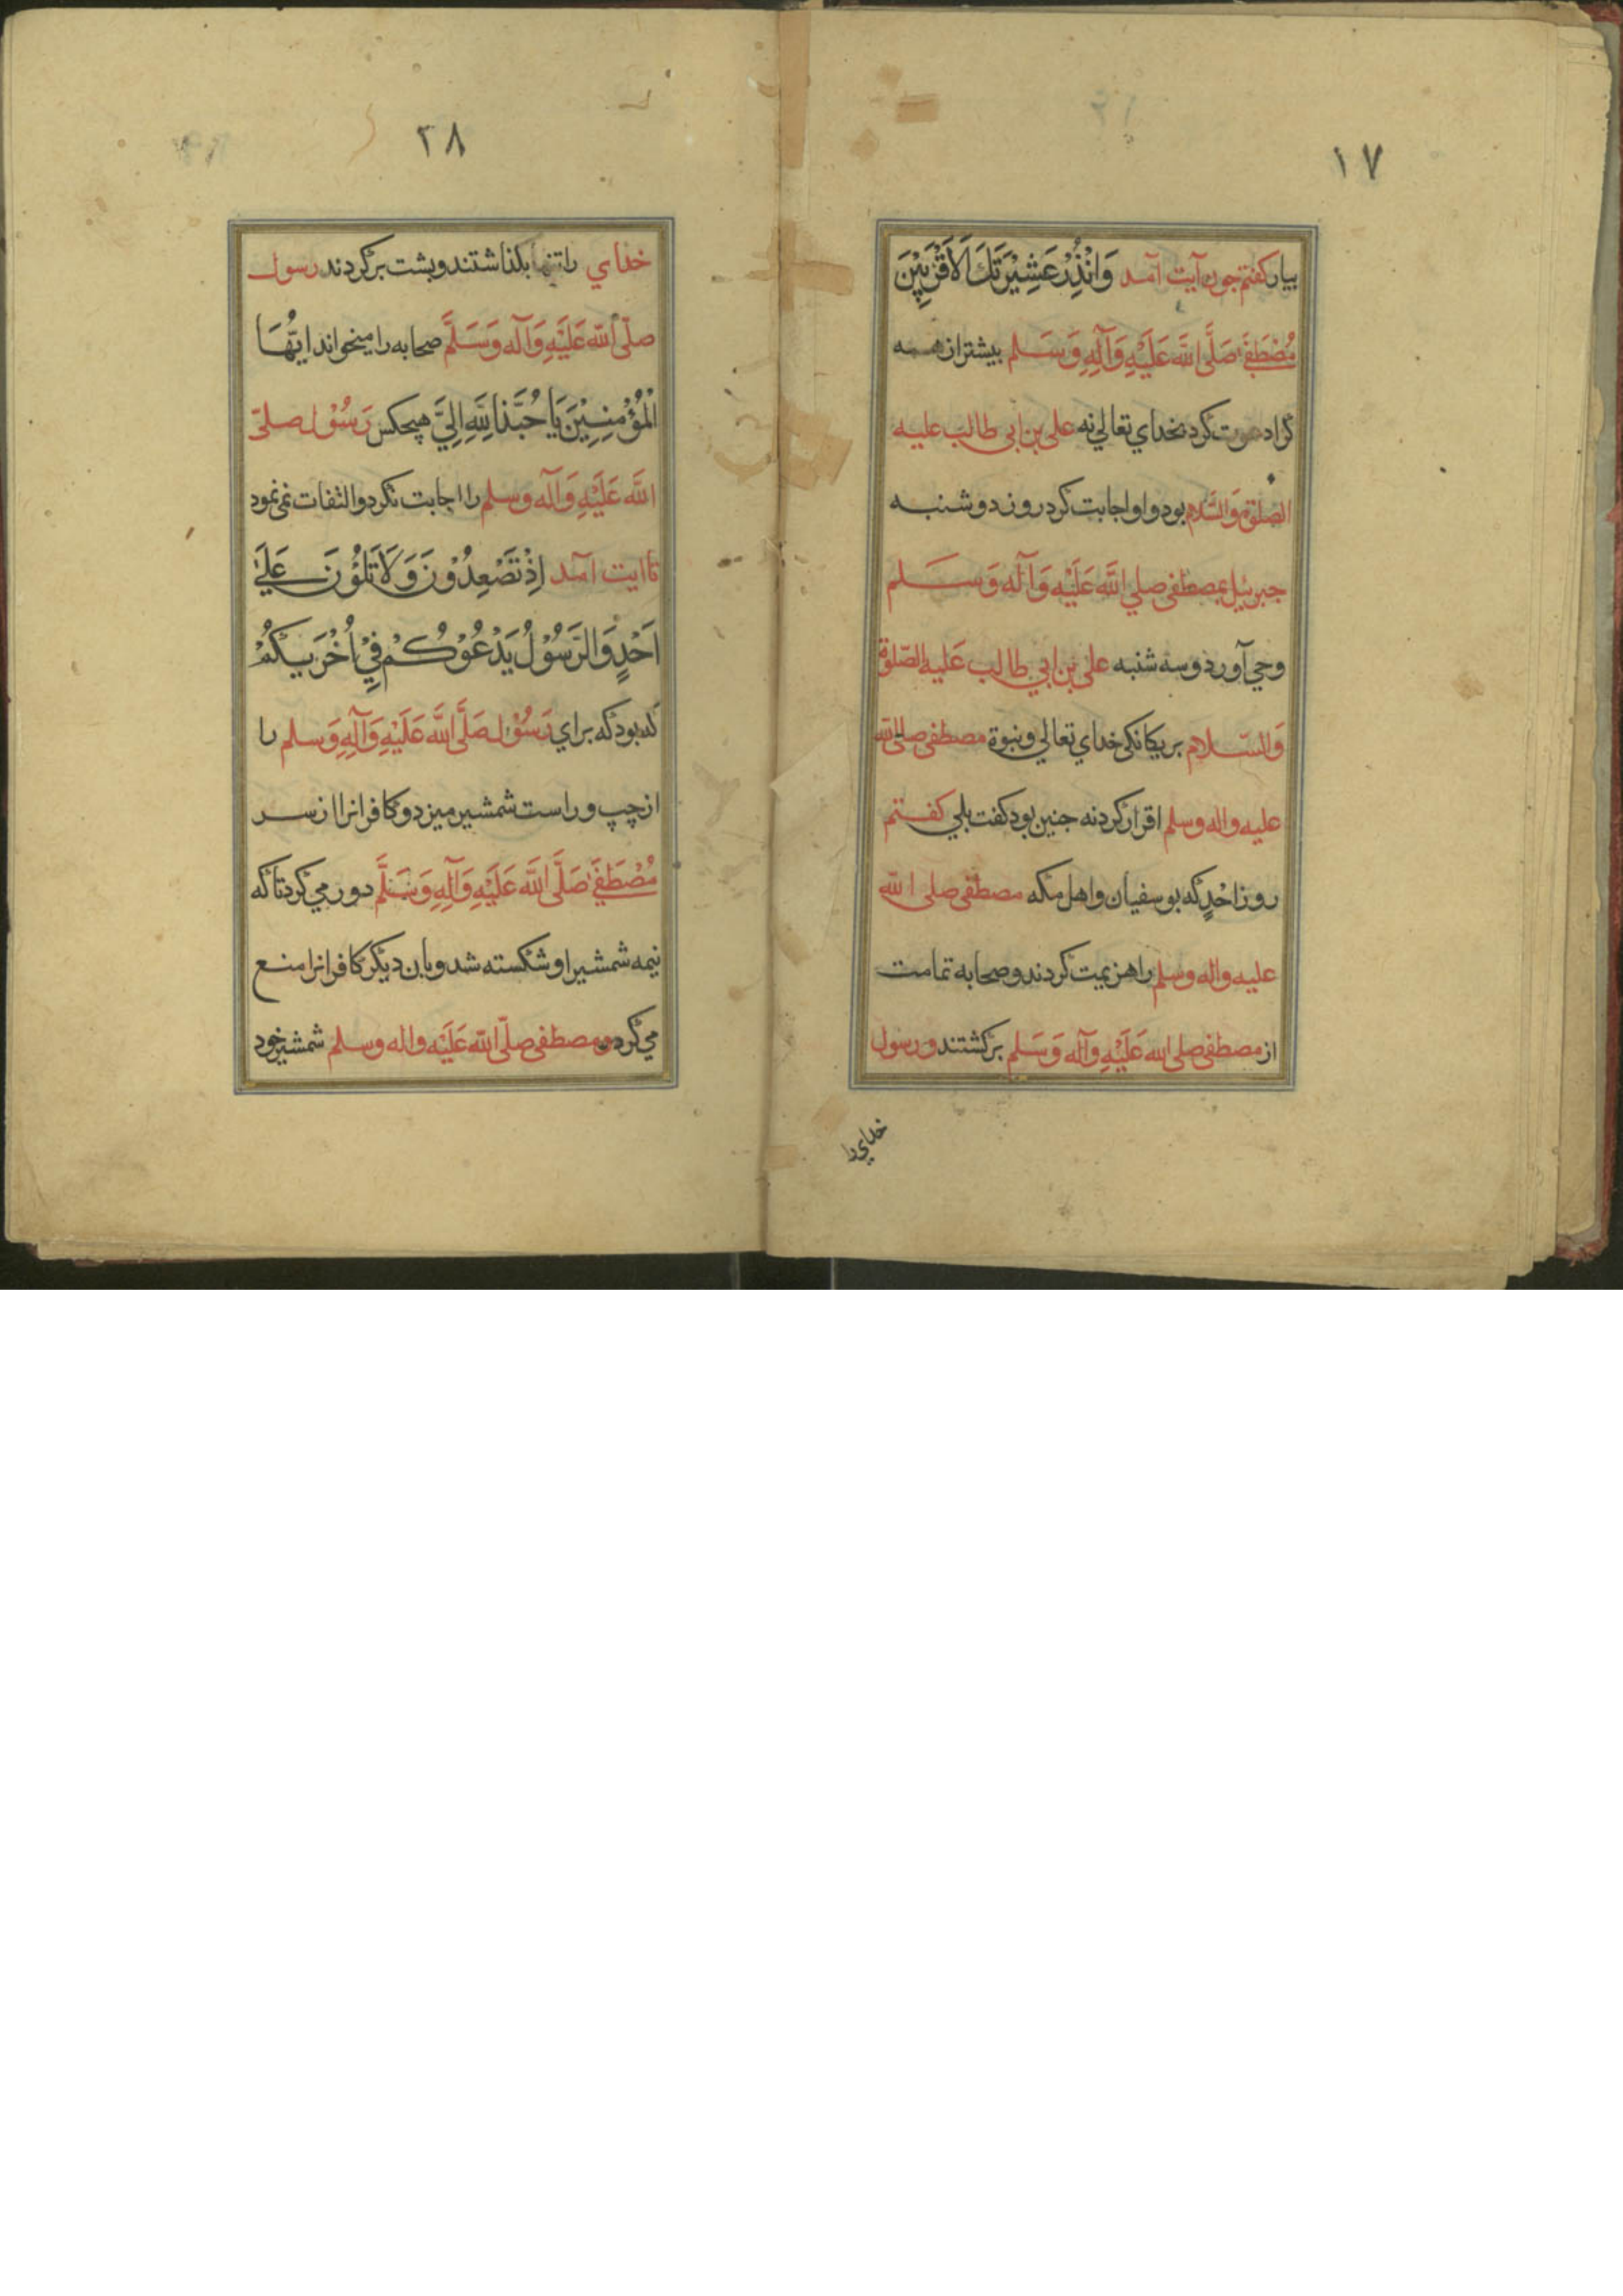 ١٧
بیار کفتم جون آیت آمد وَانْذِرْ عَشِیْرَتَكَ الْاَقْرَبِیْنَ
مُصْطَفَےٰ صَلَّی اللّٰه عَلَیْهِ وَآلِهِ وَسَلم بیشتر از همه
کرا دعوت کرد بخدای تعالی نه علی بن ابی طالب علیه
الصّلوة وَالسَّلام بود و او اجابت کرد روز دوشنبه
جبرئیل بمصطفی صلی اللَّه عَلَیْه وَآله وَسَلم
وحی آورد و سه شنبه علی بن ابی طالب عَلیه الصّلوة
وَالسّلام بر یکانکی خدای تعالی و نبوة مصطفی صلی الله
علیه واله وسلم اقرار کرد نه جنین بود کفت بلی کفتم
روز اُحُدٍ که بوسفیان و اهل مکه مصطفی صلی الله
علیه واله وسلم را هزیمت کردند و صحابه تمامت
از مصطفی صلی الله عَلَیْهِ وَآله وَسَلم برکشتند و رسول
خدای را
٢٨
خدای را تنها بکذاشتند و پشت برکردند رسول
صلّی اللّه عَلَیْهِ وَآله وَسَلَّم صحابه را میخواند ایُّهَا
الْمُؤْمِنِیْنَ یَا حُبَّذا لِلَّهِ اِلَیَّ هیچکس رَسُوْل صلّی
اللَّه عَلَیْهِ وَآله وسلم را اجابت نکرد و التفات نمی نمود
تا ایت آمد اِذْ تَصْعِدُوْنَ وَلَا تَلْوُنَ عَلَےٰ
اَحَدٍ وَالرَّسُوْلُ یَدْعُوْکُمْ فِیْ اُخْرَیٰکُمْ
که بود که برای رَسُوْل صَلَّی اللَّه عَلَیْهِ وَآلِهِ وَسلم را
از چپ و راست شمشیر میزد و کافرانرا از سر
مُصْطَفَےٰ صَلَّی اللَّه عَلَیْهِ وَآلِهِ وَسَلَّم دور می کرد تا که
نیمه شمشیر او شکسته شد و بان دیکر کافرانرا منع
می کرد و مصطفی صلّی اللّه عَلَیْه واله وسلم شمشیر خود